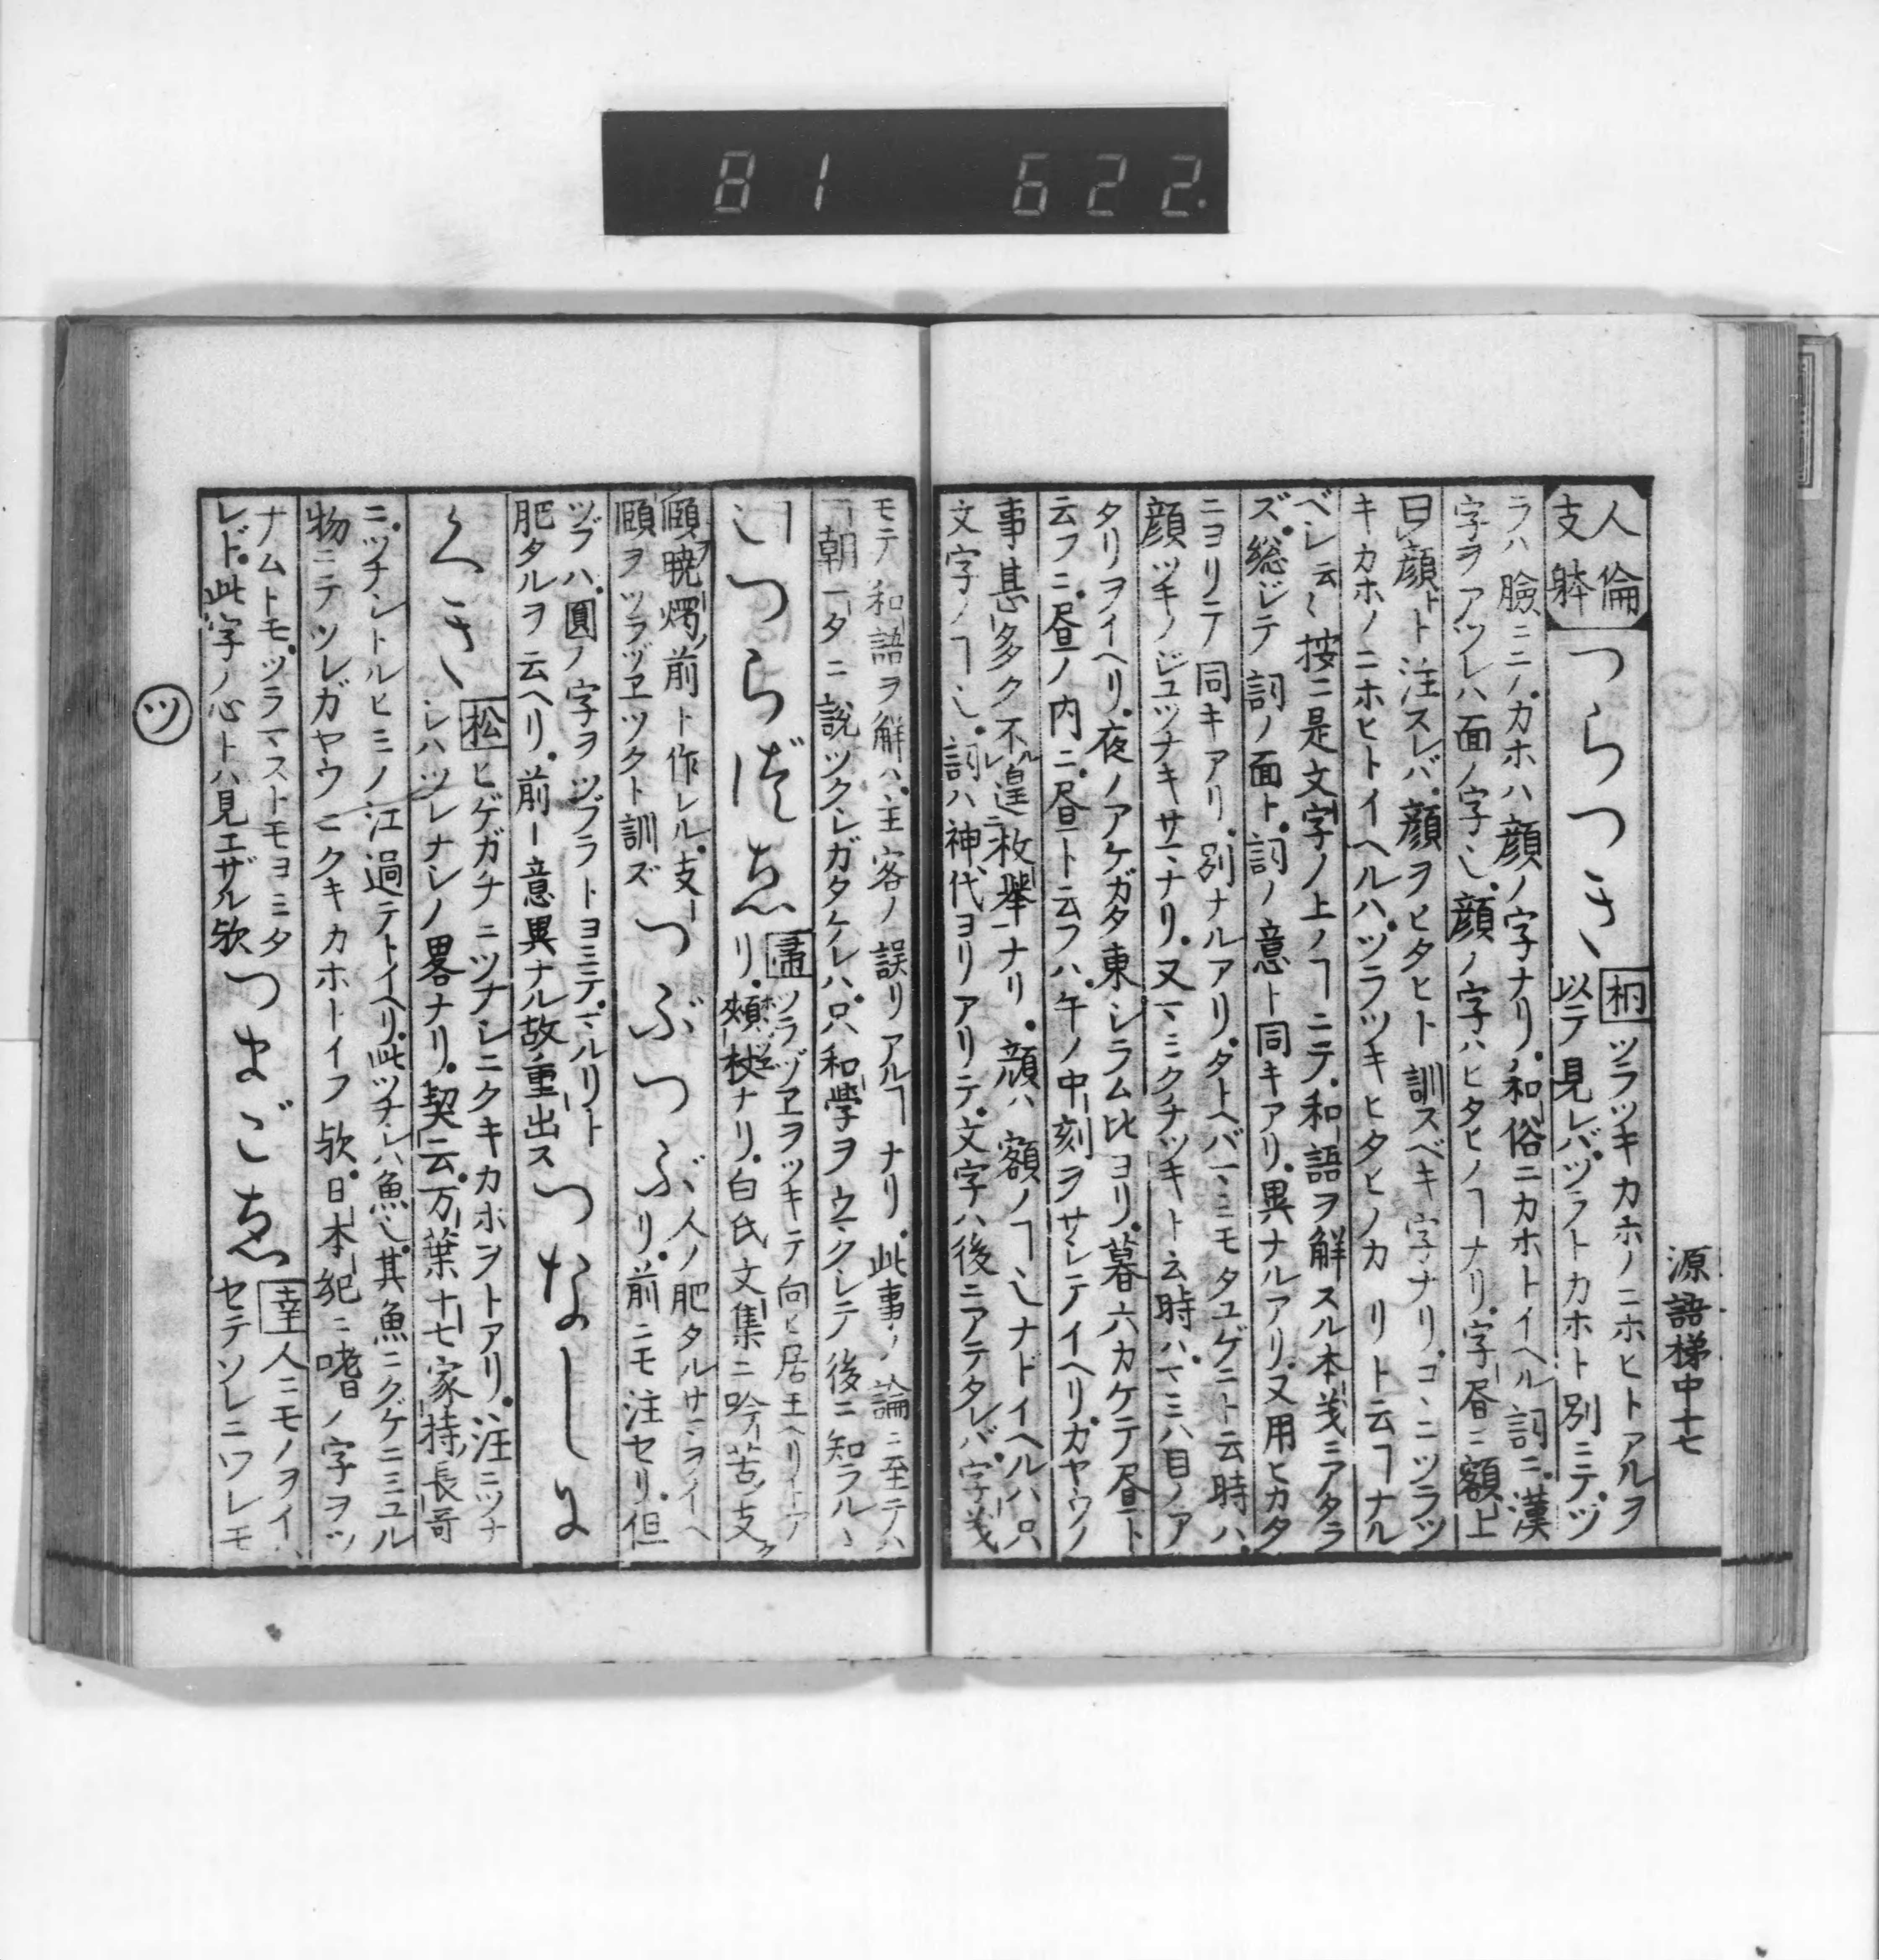 81 622.
源語梯中十七
人倫
支躰
つらつき
桐 ツラツキカホノニホヒトアルヲ
以テ見レバツラトカホト別ニテツ
ラハ臉ニノカホハ顔ノ字ナリ和俗ニカホトイヘル詞ニ漢
字ヲアツレハ面ノ字也顔ノ字ハヒタヒノヿナリ字昏ニ額上
曰顔ト注スレバ顔ヲヒタヒト訓スベキ字ナリコヽニツラツ
キカホノニホヒトイヘルハツラツキヒタヒノカヽリト云ヿナル
ベシ云〻按ニ是文字ノ上ノヿニテ和語ヲ解スル本義ニアタラ
ズ総ジテ詞ノ面ト詞ノ意ト同キアリ異ナルアリ又用ヒカタ
ニヨリテ同キアリ別ナルアリタトヘバマミモタユゲニト云時ハ
顔ツキノジユツナキサマナリ又マミクチツキト云時ハマミハ目ノア
タリヲイヘリ夜ノアケガタ東シラム比ヨリ暮六カケテ昼ト
云フニ昼ノ内ニ昼ト云フハ午ノ中刻ヲサシテイヘリカヤウノ
事甚多ク不遑枚挙ナリ顔ハ額ノヿ也ナドイヘルハ只
文字ノヿ也詞ハ神代ヨリアリテ文字ハ後ニアテタレバ字義
モテ和語ヲ解ハ主客ノ誤リアルヿナリ此事ノ論ニ至テハ
一朝一夕ニ説ツクシガタケレハ只和学ヲウマクシテ後ニ知ラルヽ
ヿ也
つらづゑ
帚 ツラヅヱヲツキテ向ヒ居玉ヘリトア
リ頬杖ナリ白氏文集ニ吟苦支
頤暁燭前ト作レル支
頤ヲツラヅヱツクト訓ズ
つぶつぶ
人ノ肥タルサマヲイヘ
リ前ニモ注セリ但
ツブハ圓ノ字ヲツブラトヨミテマルリト
肥タルヲ云ヘリ前ト意異ナル故ニ重出ス
つなしに
くきゝ
松 ヒゲガチニツナシニクキカホヲトアリ注ニツナ
シハツレナシノ畧ナリ契云万葉十七家持長哥
ニツナシトルヒミノ江過テトイヘリ此ツナシハ魚也其魚ニクゲニミユル
物ニテツレガヤウニクキカホトイフ欤日本紀ニ嗜ノ字ヲツ
ナムトモツラマストモヨミタ
レド此字ノ心トハ見エザル欤
つまごゑ
幸 人ニモノヲイハ
セテソレニワレモ
ツ